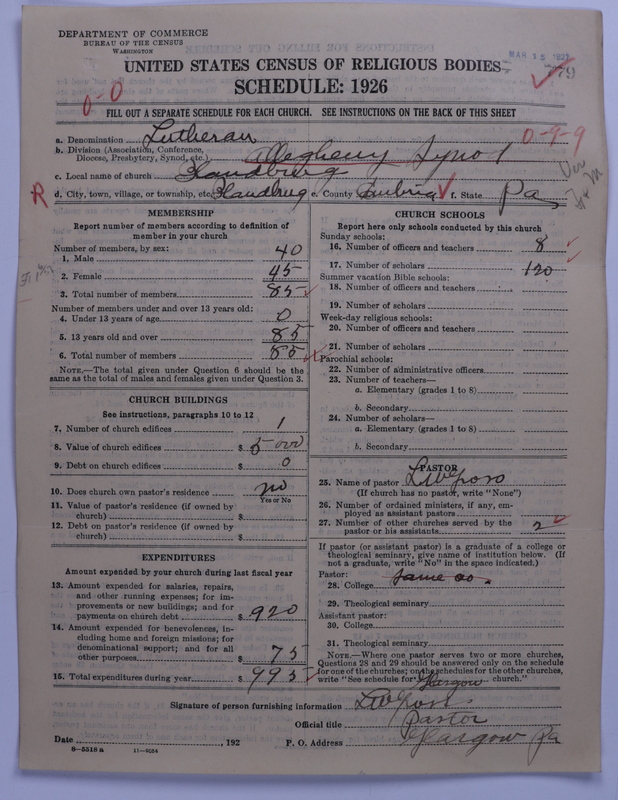 DEPARTMENT OF COMMERCE
BUREAU OF THE CENSUS
WASHINGTON
MAR 15 1927
779
UNITED STATES CENSUS OF RELIGIOUS BODIES
SCHEDULE: 1926
0-0
FILL OUT A SEPARATE SCHEDULE FOR EACH CHURCH. SEE INSTRUCTIONS ON THE BACK OF THIS SHEET
a. Denomination Lutheran 0-9-9
b. Division (Association, Conference, Diocese, Presbytery, Synod, etc.) Allegheny Synod
c. Local name of church
R d. City, town, village, or township, etc. e. County Cambria f. State Pa
MEMBERSHIP
Report number of members according to definition of
member in your church
Number of members, by sex:
1. Male 40
2. Female 45
3. Total number of members 85
Number of members under and over 13 years old:
4. Under 13 years of age 0
5. 13 years old and over 85
6. Total number of members 85
NOTE.—The total given under Question 6 should be
same as the total of males and females given under Question 3.
CHURCH BUILDINGS
See instructions, paragraphs 10 to 12
7. Number of church edifices 1
8. Value of church edifices $ 5000
9. Debt on church edifices $ 0
10. Does church own pastor's residence no
Yes or No
11. Value of pastor's residence (if owned by
church) $
12. Debt on pastor's residence (if owned by
church) $
EXPENDITURES
Amount expended by your church during last fiscal year
13. Amount expended for salaries, repairs,
and other running expenses; for im-
provements or new buildings; and for
payments on church debt $ 920
14. Amount expended for benevolences, in-
cluding home and foreign missions; for
denominational support; and for all
other purposes $ 75
15. Total expenditures during year $ 995
CHURCH SCHOOLS
Report here only schools conducted by this church
Sunday schools:
16. Number of officers and teachers 8
17. Number of scholars 120
Summer vacation Bible schools:
18. Number of officers and teachers
19. Number of scholars
Week-day religious schools:
20. Number of officers and teachers
21. Number of scholars
Parochial schools:
22. Number of administrative officers
23. Number of teachers—
a. Elementary (grades 1 to 8)
b. Secondary
24. Number of scholars—
a. Elementary (grades 1 to 8)
b. Secondary
PASTOR
25. Name of pastor
(If church has no pastor, write "None")
26. Number of ordained ministers, if any, em-
ployed as assistant pastors
27. Number of other churches served by the
pastor or his assistants 2
If pastor (or assistant pastor) is a graduate of a college or
theological seminary, give name of institution below. (If
not a graduate, write "No" in the space indicated.)
Pastor: same as
28. College
29. Theological seminary
Assistant pastor:
30. College
31. Theological seminary
NOTE.—Where one pastor serves two or more churches,
Questions 28 and 29 should be answered only on the schedule
for one of the churches; on the schedules for the other churches,
write "See schedule for Glasgow church."
Signature of person furnishing information
Official title Pastor
Date , 192 P. O. Address Glasgow Pa
8—5518 a 11—9084